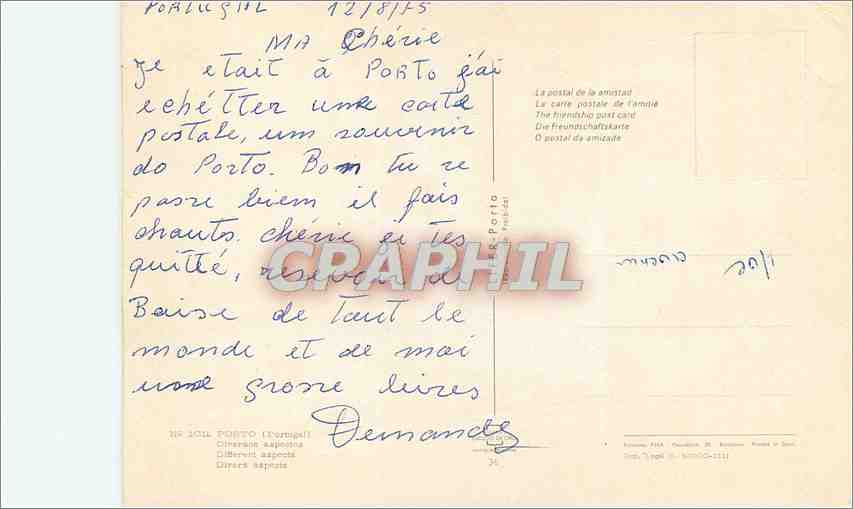 PORTUGAL 12/8/75
MA Chérie
Je etait à PORTO j'ai
echétter une carte
postale, um souvenir
do Porto. Bom tu re
passe biem il fais
chauts. chérie je tes
quitté, resevoir d
Baise de tout le
monde et de moi
une grosse
La postal de la amistad
La carte postale de l'amitié
The friendship post card
Die Freundschaftskarte
O postal da amizade
LIFER-Porto
CPARPHIL
Nº 1011 PORTO (Portugal)
Diversos aspectos
Different aspects
Divers aspects
36